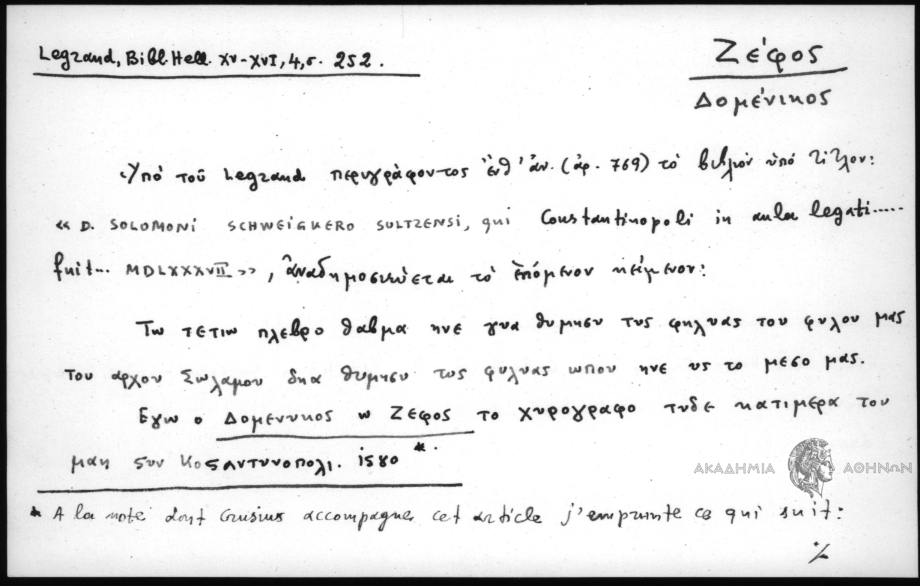 Legrand, Bibl. Hell. XV-XVI, 4, σ. 252.
Ζέφος
Δομένικος
Ὑπό τοῦ Legrand περιγράφοντος ἐνθ' ἀν. (ἀρ. 769) τό βιβλίον ὑπό τίτλον:
« D. SOLOMONI SCHWEIGKERO SULTZENSI, qui Constantinopoli in aula legati.....
fuit... MDLXXXVII », ἀναδημοσιεύεται τό ἑπόμενον κείμενον:
Τω τετιω πλεβρο θαβμα ηνε γυα θυμησυ τυς φηλυας του φυλου μας
του αρχου Σωλαμου δηα θυμησυ τως φυλυας ωπου ηνε υς το μεσο μας.
Εγω ο Δομενυκος ω Ζεφος το χυρογραφο τυδε κατιμερα του
μαη ςυν Κοςαντυνοπολι. 1580 *.
ΑΚΑΔΗΜΙΑ ΑΘΗΝΩΝ
* A la note dont Crusius accompagne cet article j'emprunte ce qui suit:
./.